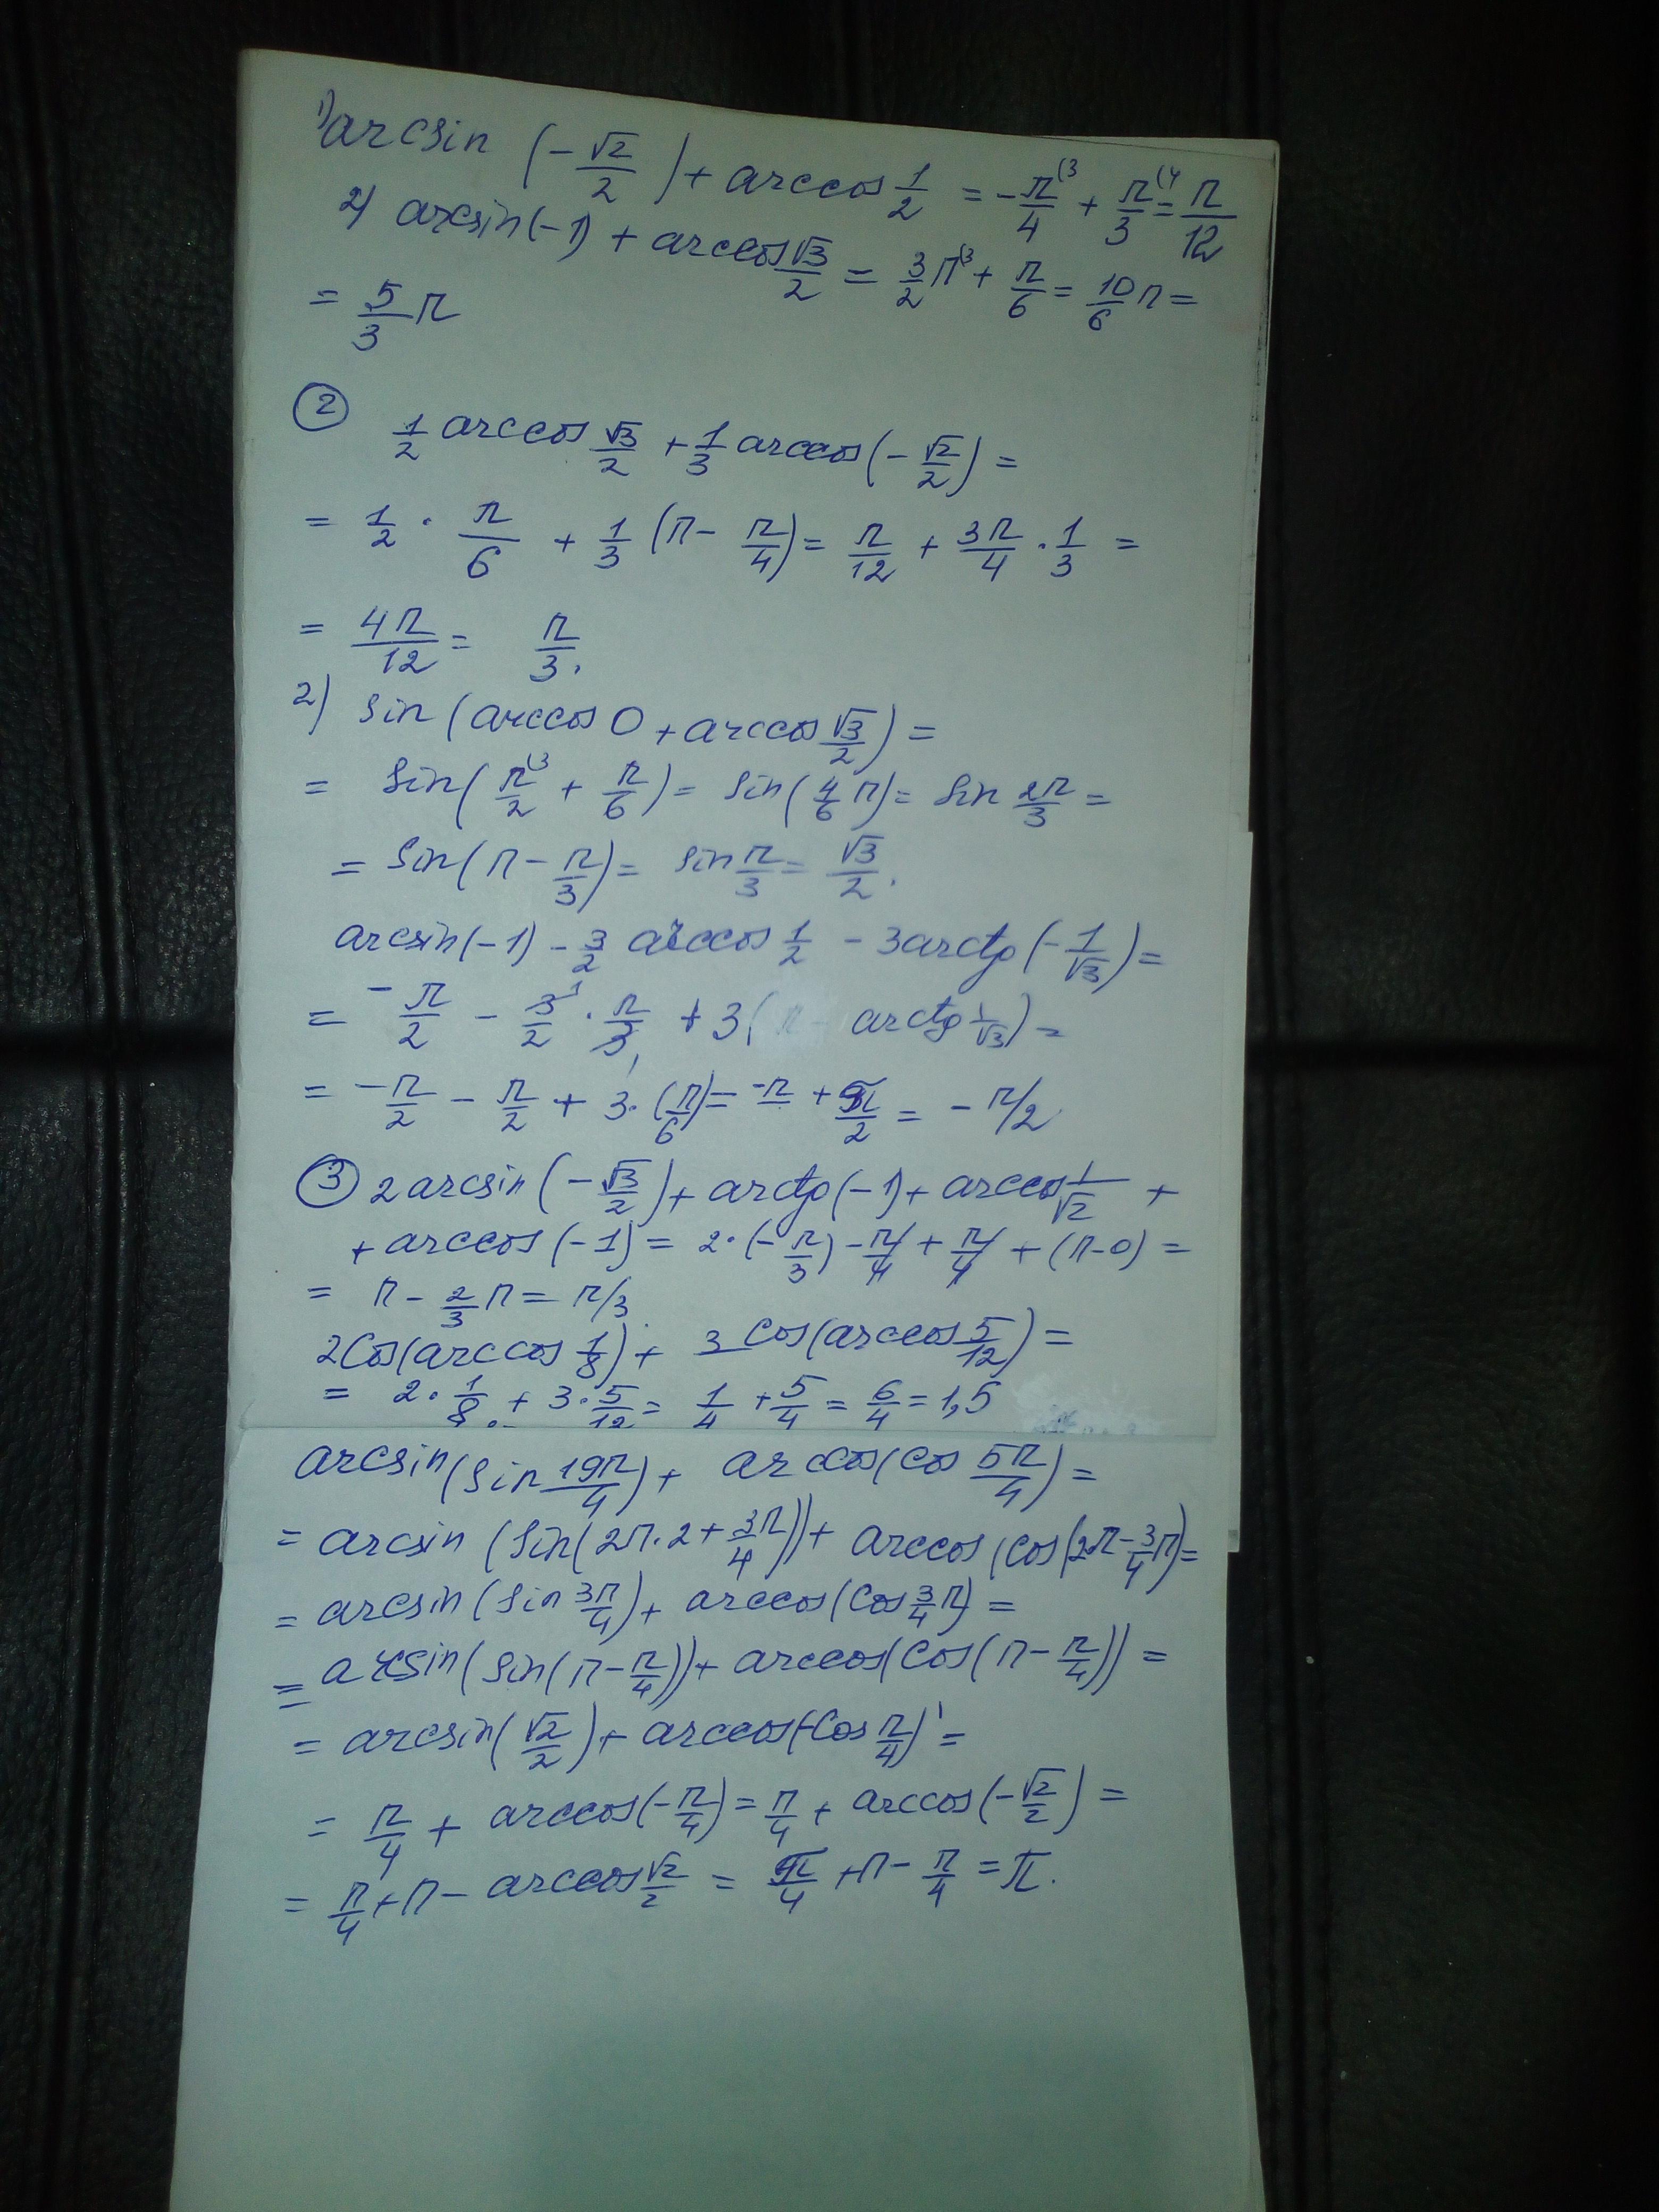 1) arcsin (-√2/2) + arccos 1/2 = -π/4 (3 + π/3 (4 = π/12
2) arcsin(-1) + arccos √3/2 = 3/2 π (3 + π/6 = 10/6 π =
= 5/3 π
② 
1/2 arccos √3/2 + 1/3 arccos (-√2/2) =
= 1/2 · π/6 + 1/3 (π - π/4) = π/12 + 3π/4 · 1/3 =
= 4π/12 = π/3.
2) sin (arccos 0 + arccos √3/2) =
= sin (π/2 (3 + π/6) = sin (4/6 π) = sin 2π/3 =
= sin (π - π/3) = sin π/3 = √3/2.
arcsin(-1) - 3/2 arccos 1/2 - 3 arctg (-1/√3) =
= -π/2 - 3/2 · π/3 + 3( arctg 1/√3) =
= -π/2 - π/2 + 3 · (π/6) = -π + π/2 = -π/2
③ 2 arcsin (-√3/2) + arctg (-1) + arccos 1/√2 +
+ arccos (-1) = 2 · (-π/3) - π/4 + π/4 + (π - 0) =
= π - 2/3 π = π/3
2 cos (arccos 1/8) + 3 cos (arccos 5/12) =
= 2 · 1/8 + 3 · 5/12 = 1/4 + 5/4 = 6/4 = 1,5
arcsin (sin 19π/4) + arccos (cos 5π/4) =
= arcsin (sin (2π · 2 + 3π/4)) + arccos (cos (2π - 3/4 π) =
= arcsin (sin 3π/4) + arccos (cos 3/4 π) =
= arcsin (sin (π - π/4)) + arccos (cos (π - π/4)) =
= arcsin (√2/2) + arccos (-cos π/4) =
= π/4 + arccos (-π/4) = π/4 + arccos (-√2/2) =
= π/4 + π - arccos √2/2 = π/4 + π - π/4 = π.